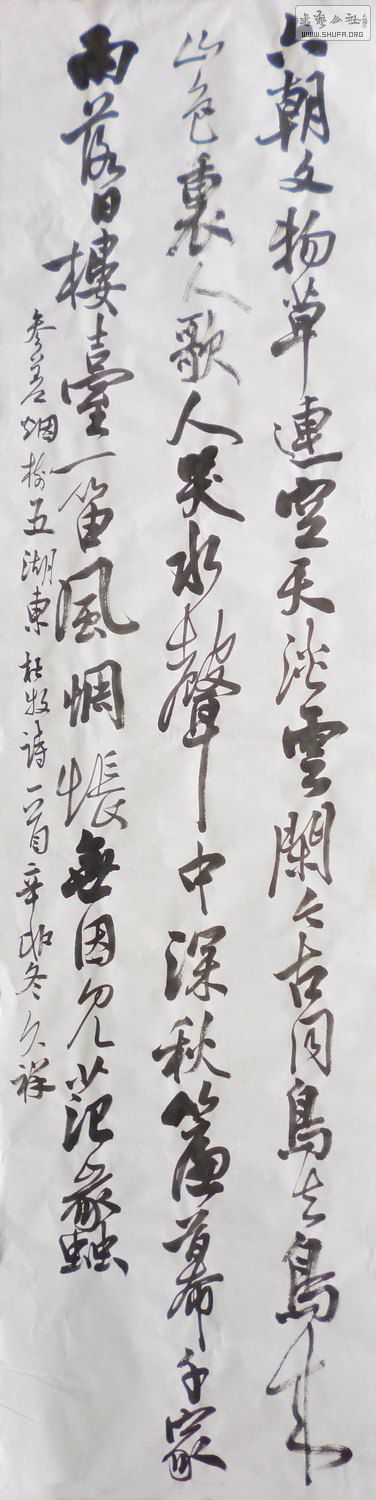 六朝文物草連空天淡雲閑今古同鳥去鳥來
山色裏人歌人哭水聲中深秋簾幕千家
雨落日樓臺一笛風惆悵無因見范蠡
參差烟樹五湖東杜牧詩一首辛卯冬久祥
書藝公社
WWW.SHUFA.ORG